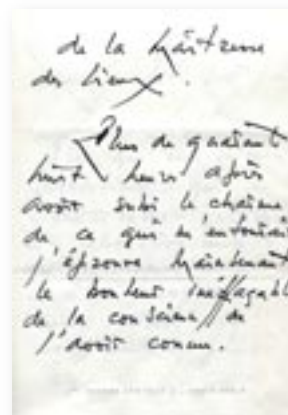 de la Maîtresse
des lieux.
Plus de quarant
huit heures après
avoir subi le charme
de ce qui m'entourait
j'éprouve maintenant
le bonheur ineffaçable
de la conscience de
l'avoir connu.